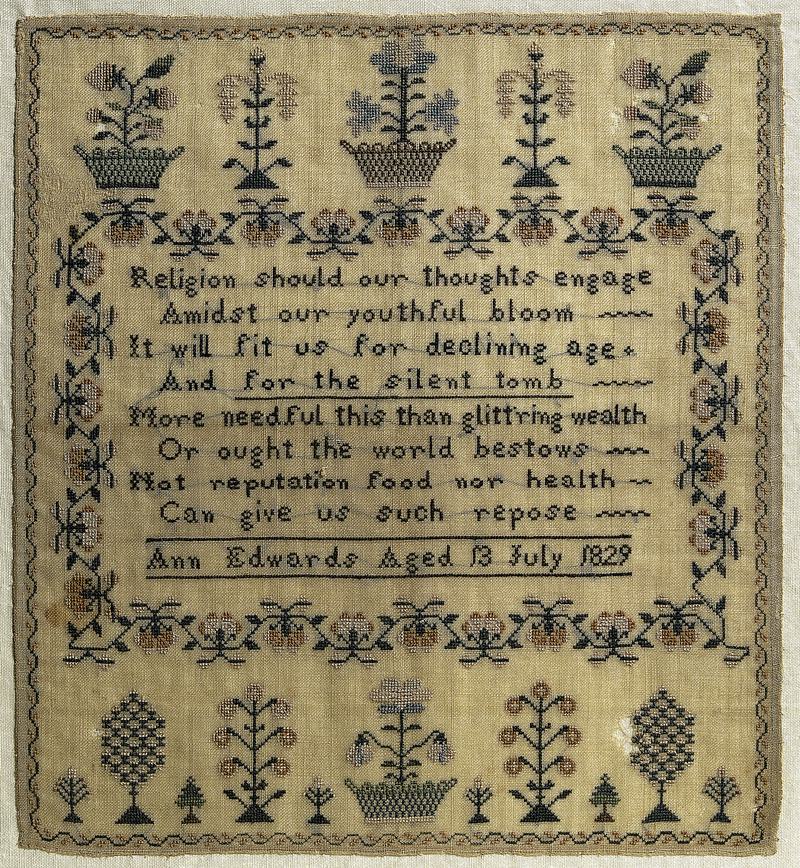 Religion should our thoughts engage
Amidst our youthful bloom
It will fit us for declining age
And for the silent tomb
More needful this than glitt'ring wealth
Or ought the world bestows
Not reputation food nor health
Can give us such repose
Ann Edwards Aged 13 July 1829